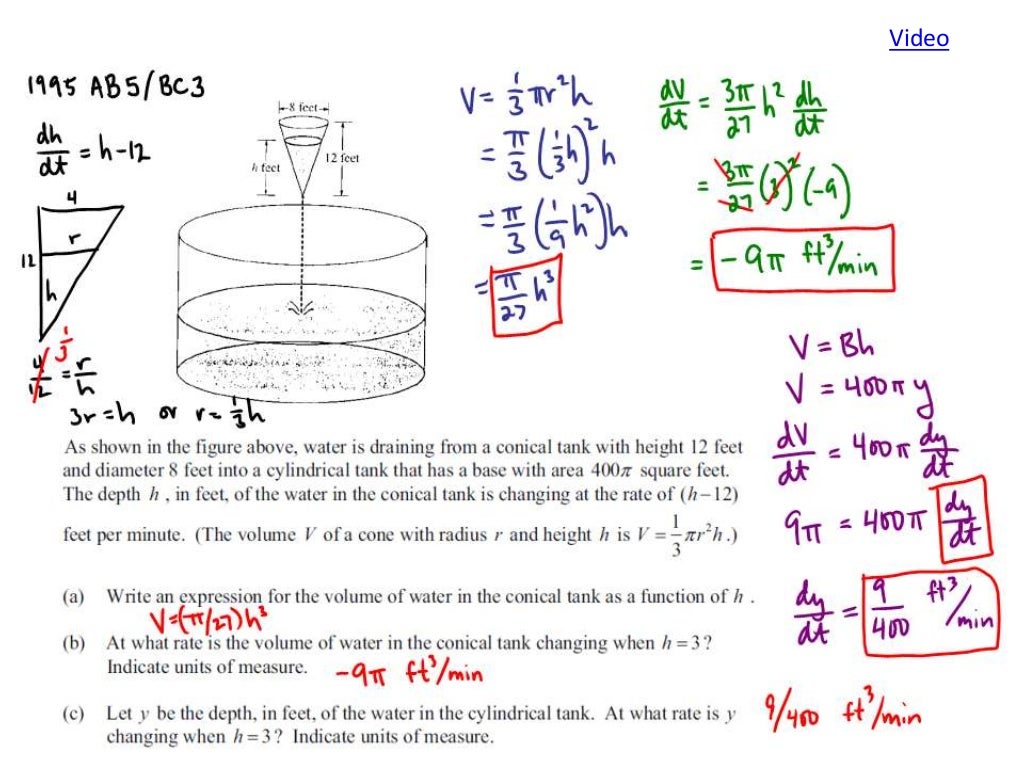 Video
1995 AB5/BC3
dh/dt = h-12
4
r
12
h
4/12 = r/h
1/3
3r=h or r=1/3h
8 feet
12 feet
h feet
V= 1/3 πr²h
= π/3 (1/3h)² h
= π/3 (1/9 h²)h
= π/27 h³
dV/dt = 3π/27 h² dh/dt
= 3π/27 (3)² (-9)
= -9π ft³/min
V = Bh
V = 400π y
dV/dt = 400π dy/dt
9π = 400π dy/dt
dy/dt = 9/400 ft³/min
As shown in the figure above, water is draining from a conical tank with height 12 feet
and diameter 8 feet into a cylindrical tank that has a base with area 400π square feet.
The depth h , in feet, of the water in the conical tank is changing at the rate of (h−12)
feet per minute. (The volume V of a cone with radius r and height h is V = 1/3 πr²h.)
(a) Write an expression for the volume of water in the conical tank as a function of h .
V=(π/27)h³
(b) At what rate is the volume of water in the conical tank changing when h=3?
Indicate units of measure. -9π ft³/min
(c) Let y be the depth, in feet, of the water in the cylindrical tank. At what rate is y
changing when h=3? Indicate units of measure.
9/400 ft³/min